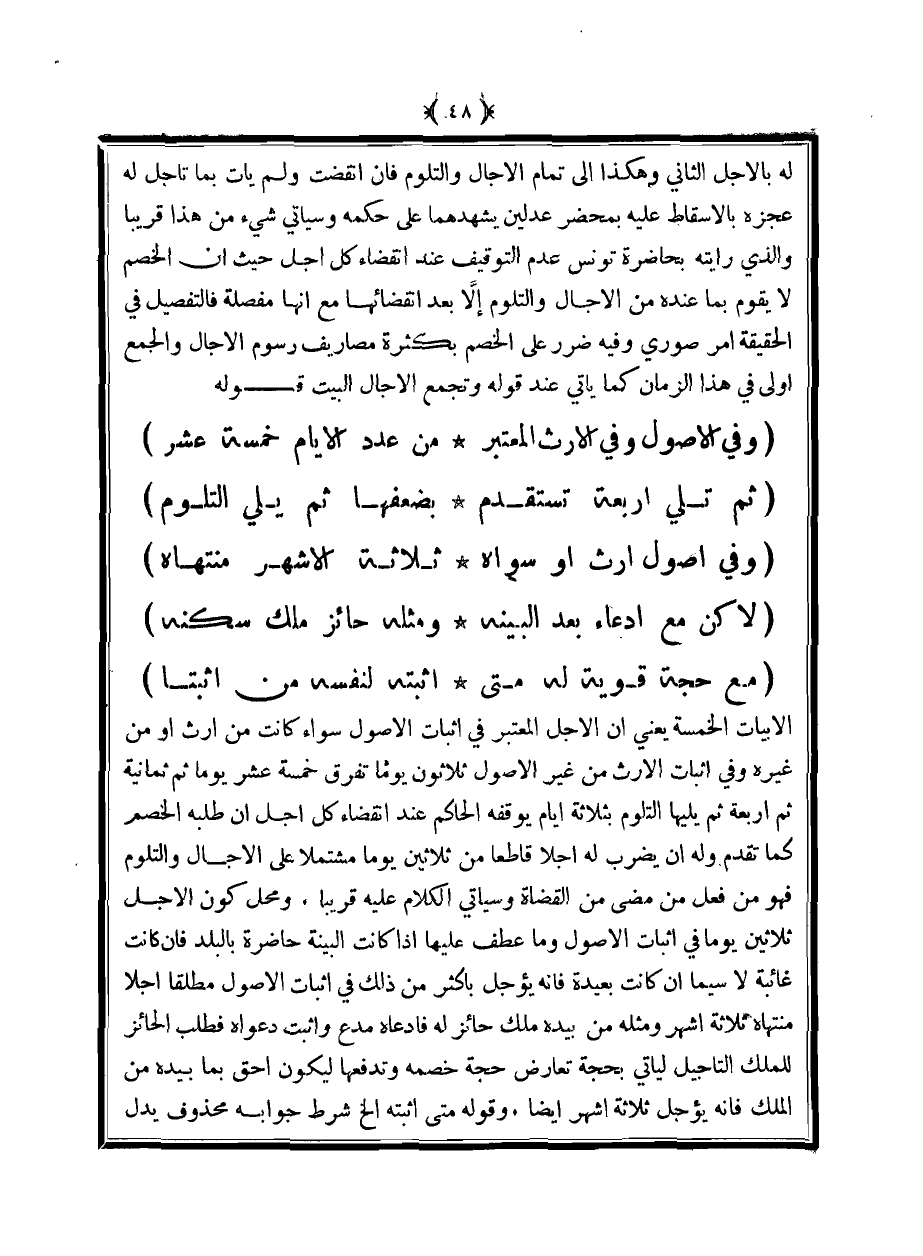 ﴿ ٤٨ ﴾
له بالاجل الثاني وهكذا الى تمام الاجال والتلوم فان انقضت ولم يات بما تاجل له
عجزه بالاسقاط عليه بمحضر عدلين يشهدهما على حكمه وسياتي شيء من هذا قريبا
والذي رايته بحاضرة تونس عدم التوقيف عند انقضاء كل اجل حيث ان الخصم
لا يقوم بما عنده من الاجال والتلوم إلَّا بعد انقضائها مع انها مفصلة فالتفصيل في
الحقيقة امر صوري وفيه ضرر على الخصم بكثرة مصاريف رسوم الاجال والجمع
اولى في هذا الزمان كما ياتي عند قوله وتجمع الاجال البيت قـــوله
( وفي الاصول وفي الارث المعتبر * من عدد الايام خمسة عشر )
( ثم تـلي اربعة تستقـدم * بضعفهـا ثم يـلي التلـوم )
( وفي اصول ارث او سواه * ثـلاثـة الاشهـر منتهـاه )
( لاكن مع ادعاء بعد البينه * ومثله حائز ملك سكنه )
( مـع حجة قـوية له مـتى * اثبته لنفسه من اثبتـا )
الابيات الخمسة يعني ان الاجل المعتبر في اثبات الاصول سواء كانت من ارث او من
غيره وفي اثبات الارث من غير الاصول ثلاثون يومًا تفرق خمسة عشر يوما ثم ثمانية
ثم اربعة ثم يليها التلوم بثلاثة ايام يوقفه الحاكم عند انقضاء كل اجل ان طلبه الخصم
كما تقدم وله ان يضرب له اجلا قاطعا من ثلاثين يوما مشتملا على الاجال والتلوم
فهو من فعل من مضى من القضاة وسياتي الكلام عليه قريبا . ومحل كون الاجل
ثلاثين يوما في اثبات الاصول وما عطف عليها اذا كانت البينة حاضرة بالبلد فان كانت
غائبة لا سيما ان كانت بعيدة فانه يؤجل باكثر من ذلك في اثبات الاصول مطلقا اجلا
منتهاه ثلاثة اشهر ومثله من بيده ملك حائز له فادعاه مدع واثبت دعواه فطلب الحائز
للملك التاجيل لياتي بحجة تعارض حجة خصمه وتدفعها ليكون احق بما بيده من
الملك فانه يؤجل ثلاثة اشهر ايضا . وقوله متى اثبته الخ شرط جوابه محذوف يدل